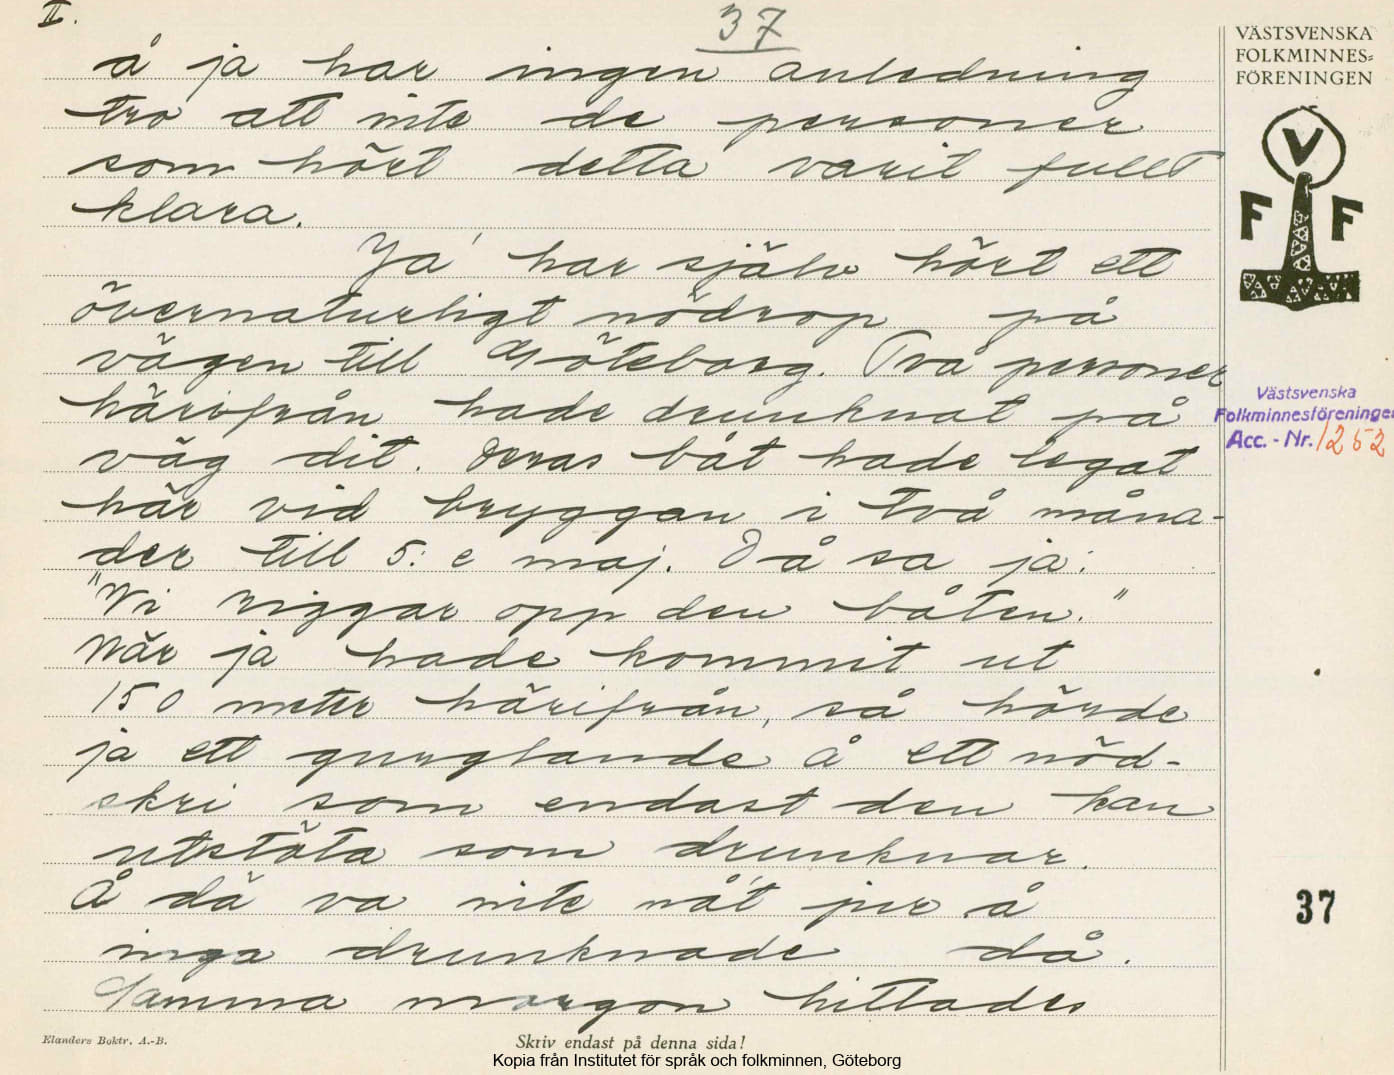 II.
37
å ja har ingen anledning
tro att inte de personer
som hört detta varit fullt
klara.
Ja' har själv hört ett
övernaturligt nödrop på
vägen till Göteborg. Två personer
härifrån hade drunknat på
väg dit. Deras båt hade legat
här vid bryggan i två måna-
der till 5:e maj. Då sa ja:
"Vi riggar opp den båten."
När ja hade kommit ut
150 meter härifrån, så hörde
ja ett gurglande å ett nöd-
skri som endast den kan
utstöta som drunknar.
Å dä va inte nå't jur å
inga drunknade då.
Samma morgon hittades
VÄSTSVENSKA
FOLKMINNES=
FÖRENINGEN
V
F F
Västsvenska
Folkminnesföreningen
Acc.-Nr. 1252
37
Elanders Boktr. A.-B.
Skriv endast på denna sida!
Kopia från Institutet för språk och folkminnen, Göteborg